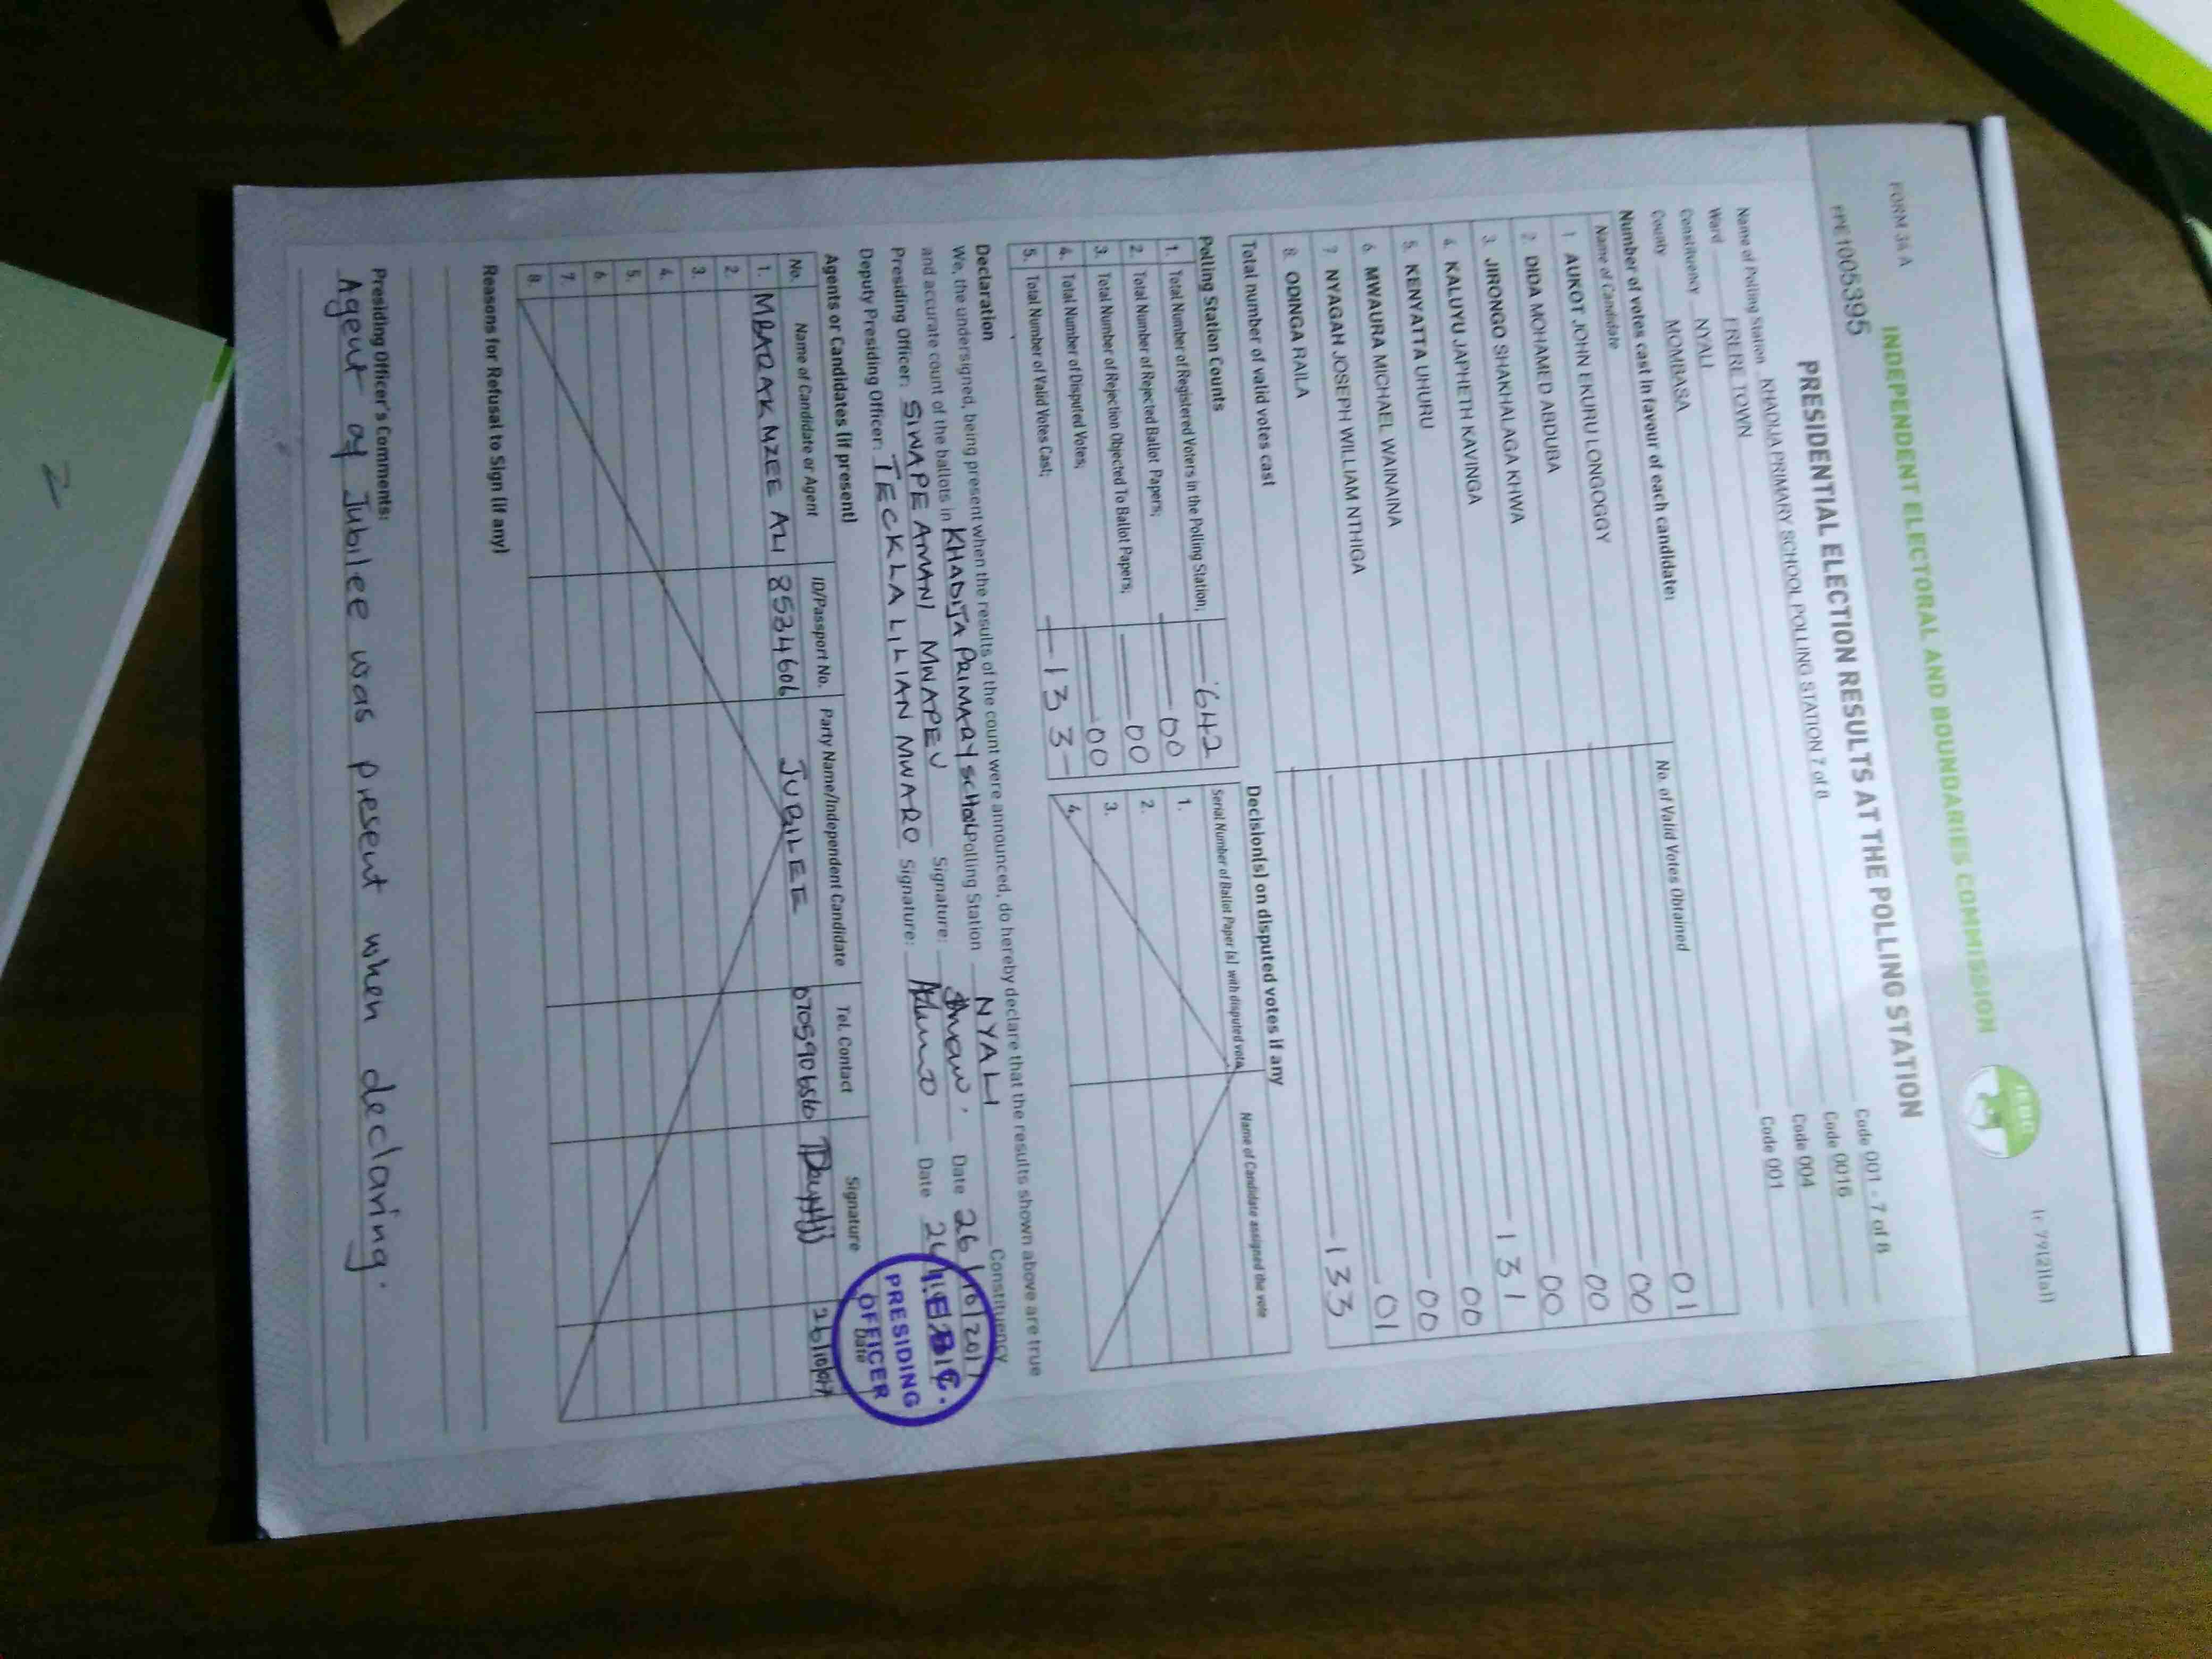 FORM 34 A
r. 79(2)(a)
INDEPENDENT ELECTORAL AND BOUNDARIES COMMISSION
IEBC
PPE1005395
PRESIDENTIAL ELECTION RESULTS AT THE POLLING STATION
Name of Polling Station KHADIJA PRIMARY SCHOOL POLLING STATION 7 of 8 Code 001 - 7 of 8
Ward FRERE TOWN Code 0016
Constituency NYALI Code 004
County MOMBASA Code 001
Number of votes cast in favour of each candidate:
Name of Candidate No. of Valid Votes Obtained
1. AUKOT JOHN EKURU LONGOGGY 01
2. DIDA MOHAMED ABDUBA 00
3. JIRONGO SHAKHALAGA KHWA 00
4. KALUYU JAPHETH KAVINGA 00
5. KENYATTA UHURU 131
6. MWAURA MICHAEL WAINAINA 00
7. NYAGAH JOSEPH WILLIAM NTHIGA 00
8. ODINGA RAILA 01
Total number of valid votes cast 133
Polling Station Counts
1. Total Number of Registered Voters in the Polling Station; 642
2. Total Number of Rejected Ballot Papers; 00
3. Total Number of Rejection Objected To Ballot Papers; 00
4. Total Number of Disputed Votes; 00
5. Total Number of Valid Votes Cast; 133
Decision(s) on disputed votes if any
Serial Number of Ballot Paper (s) with disputed vote Name of Candidate assigned the vote
1.
2.
3.
4.
Declaration
We, the undersigned, being present when the results of the count were announced, do hereby declare that the results shown above are true
and accurate count of the ballots in KHADIJA PRIMARY SCHOOL Polling Station NYALI Constituency
Presiding Officer: SIWAPE AMANI MWAPEU Signature: Date 26/10/2017
Deputy Presiding Officer: TECKLA LILIAN MWARO Signature: Date
I.E.B.C.
PRESIDING
OFFICER
Agents or Candidates (if present)
No. Name of Candidate or Agent ID/Passport No. Party Name/Independent Candidate Tel. Contact Signature Date
1. MBARAK MZEE ALI 8534606 JUBILEE 26/10/017
2.
3.
4.
5.
6.
7.
8.
Reasons for Refusal to Sign (if any)
Presiding Officer's Comments:
Agent of Jubilee was present when declaring.
2